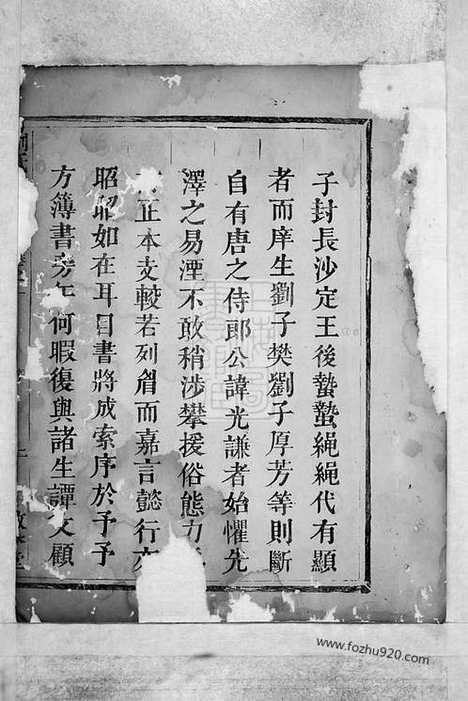 子封長沙定王後蟄蟄繩繩代有顯
者而庠生劉子樊劉子厚芳等則斷
自有唐之侍郎公諱光謙者始懼先
澤之易湮不敢稍涉攀援俗態力
正本支較若列眉而嘉言懿行
昭昭如在耳目書將成索序於予予
方簿書旁午何暇復與諸生譚文顧
www.fozhu920.com